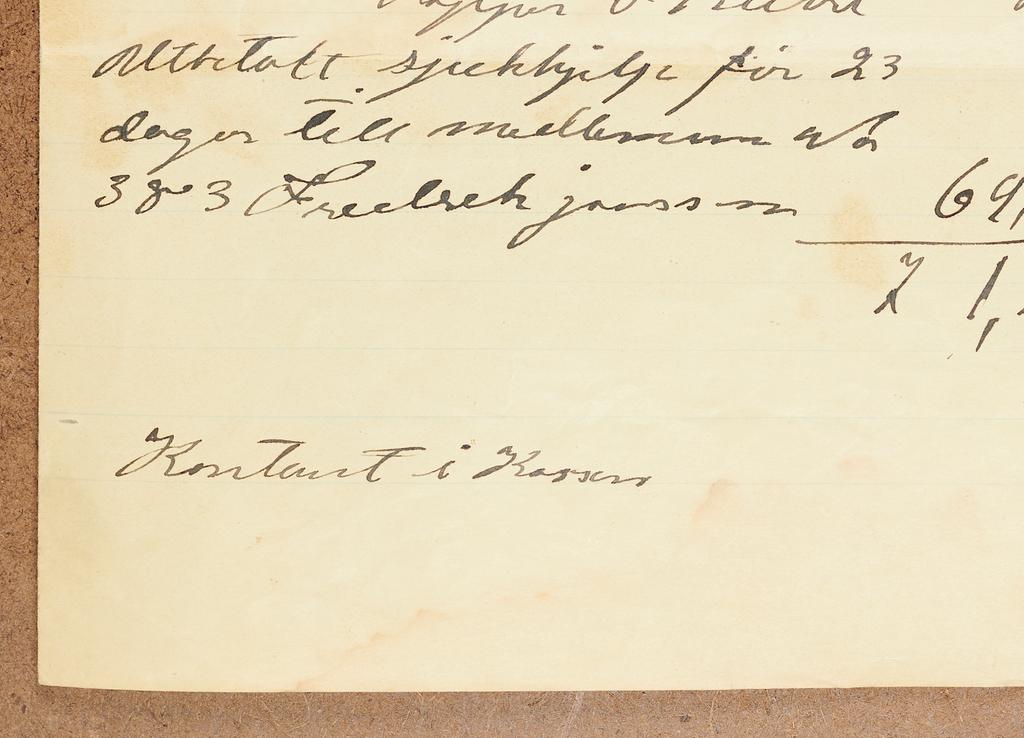 Utbetalt sjukhjelp för 23
dager till medlemmen No
383 Fredrek jonssen 69,
71,
Kontant i Kassen